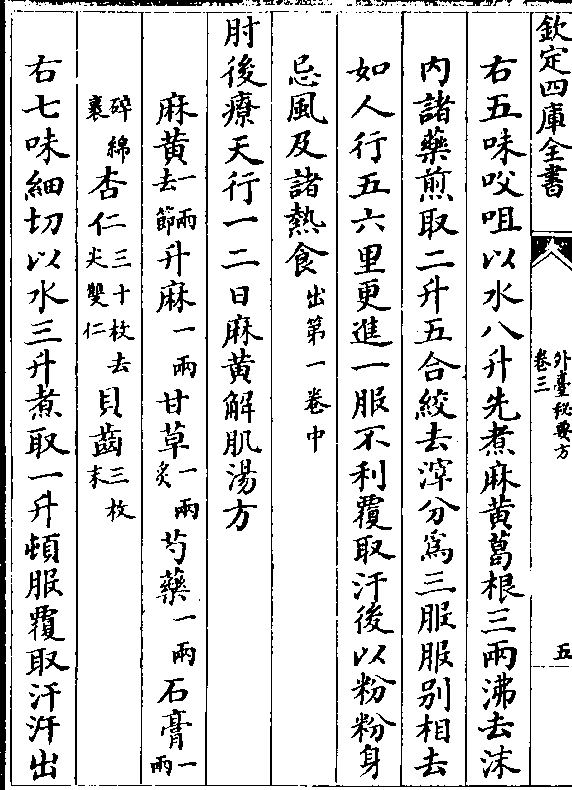 欽定四庫全書
外臺秘要方
卷三
五
右五味㕮咀以水八升先煮麻黄葛根三兩沸去沫
内諸藥煎取二升五合絞去滓分為三服服别相去
如人行五六里更進一服不利覆取汗後以粉粉身
忌風及諸熱食出第一卷中
肘後療天行一二日麻黄解肌湯方
麻黄一兩去節升麻一兩甘草一兩炙芍藥一兩石膏一兩
碎綿裹杏仁三十枚去尖雙仁貝齒三枚末
右七味細切以水三升煮取一升頓服覆取汗汗出